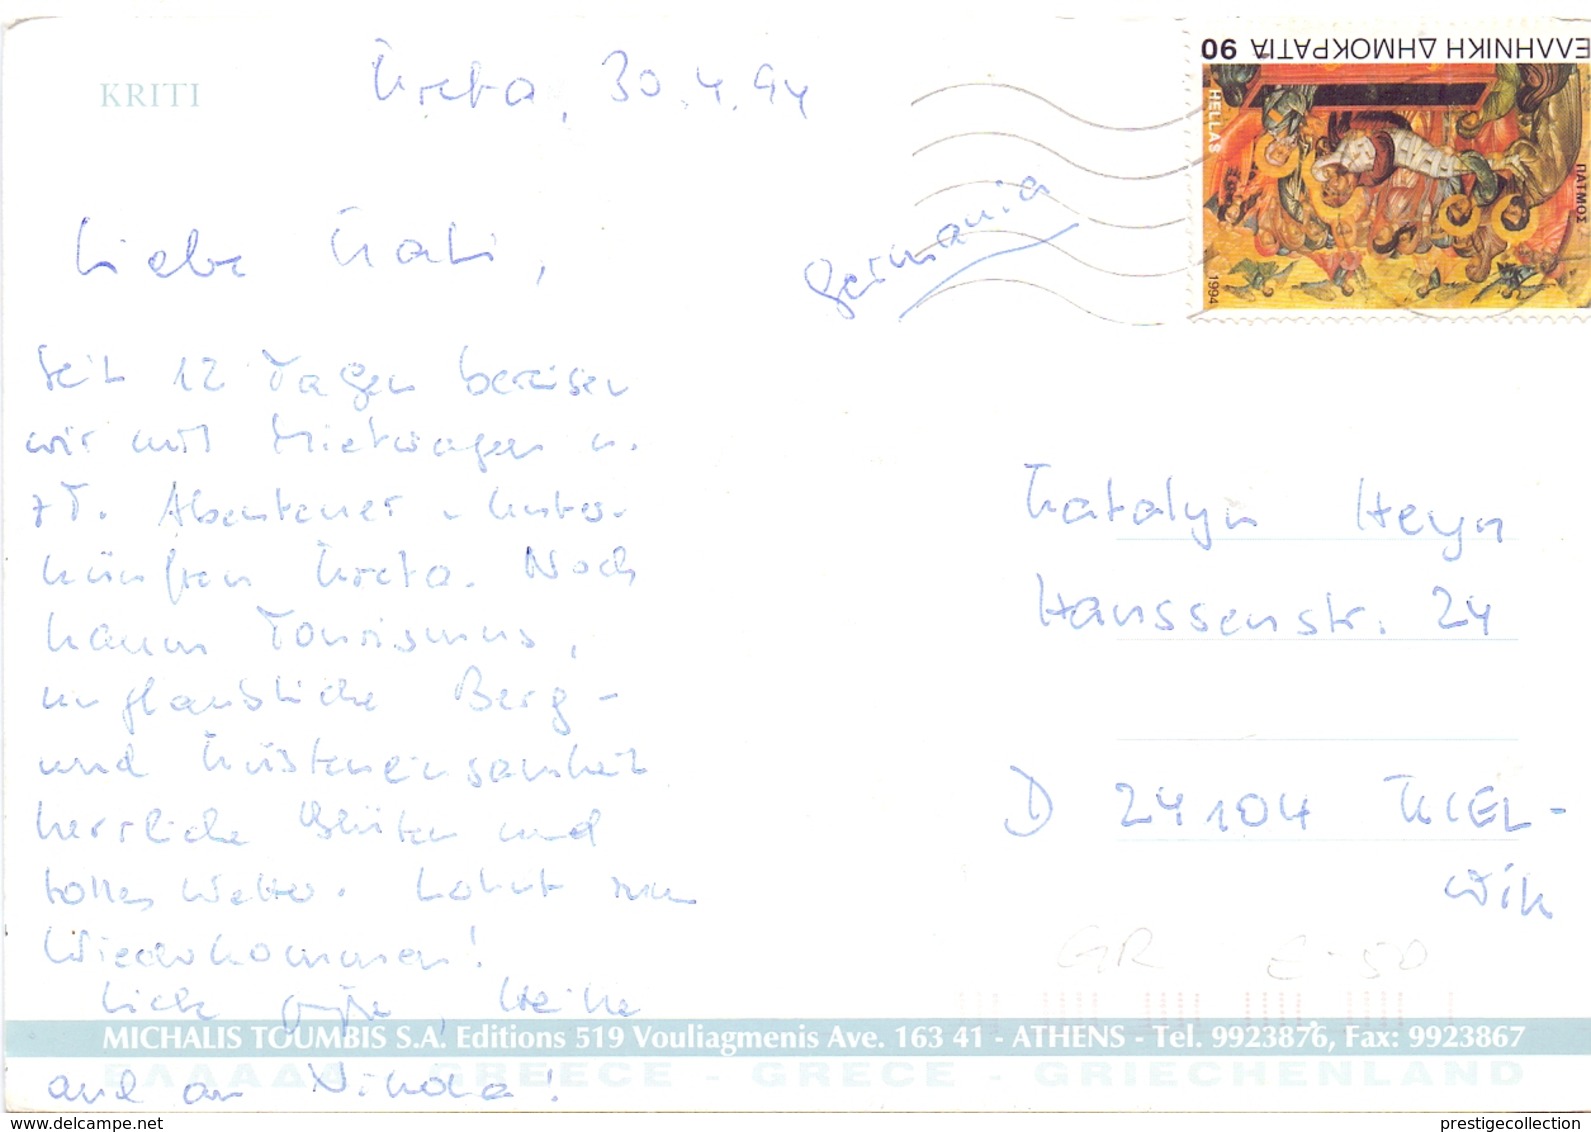 KRITI
Kreta, 30.4.94
ΕΛΛΗΝΙΚΗ ΔΗΜΟΚΡΑΤΙΑ 90
HELLAS
ΠΑΤΜΟΣ
1994
Germania
Liebe Kati,
Seit 12 Tagen bereisen
wir mit Mietwagen u.
z.T. Abenteuer-Unter-
künften Kreta. Noch
kaum Tourismus,
unglaubliche Berg-
und Küsteneinsamkeit
herrliche Blüten und
tolles Wetter. Lohnt zum
Wiederkommen!
Liebe Grüße, Heike
und an Nikola!
Katalyn Heyn
Hanssenstr. 24
D 24104 KIEL-
Wik
GR €-50
MICHALIS TOUMBIS S.A. Editions 519 Vouliagmenis Ave. 163 41 - ATHENS - Tel. 9923876, Fax: 9923867
ΕΛΛΑΔΑ - GREECE - GRECE - GRIECHENLAND
www.delcampe.net
prestigecollection